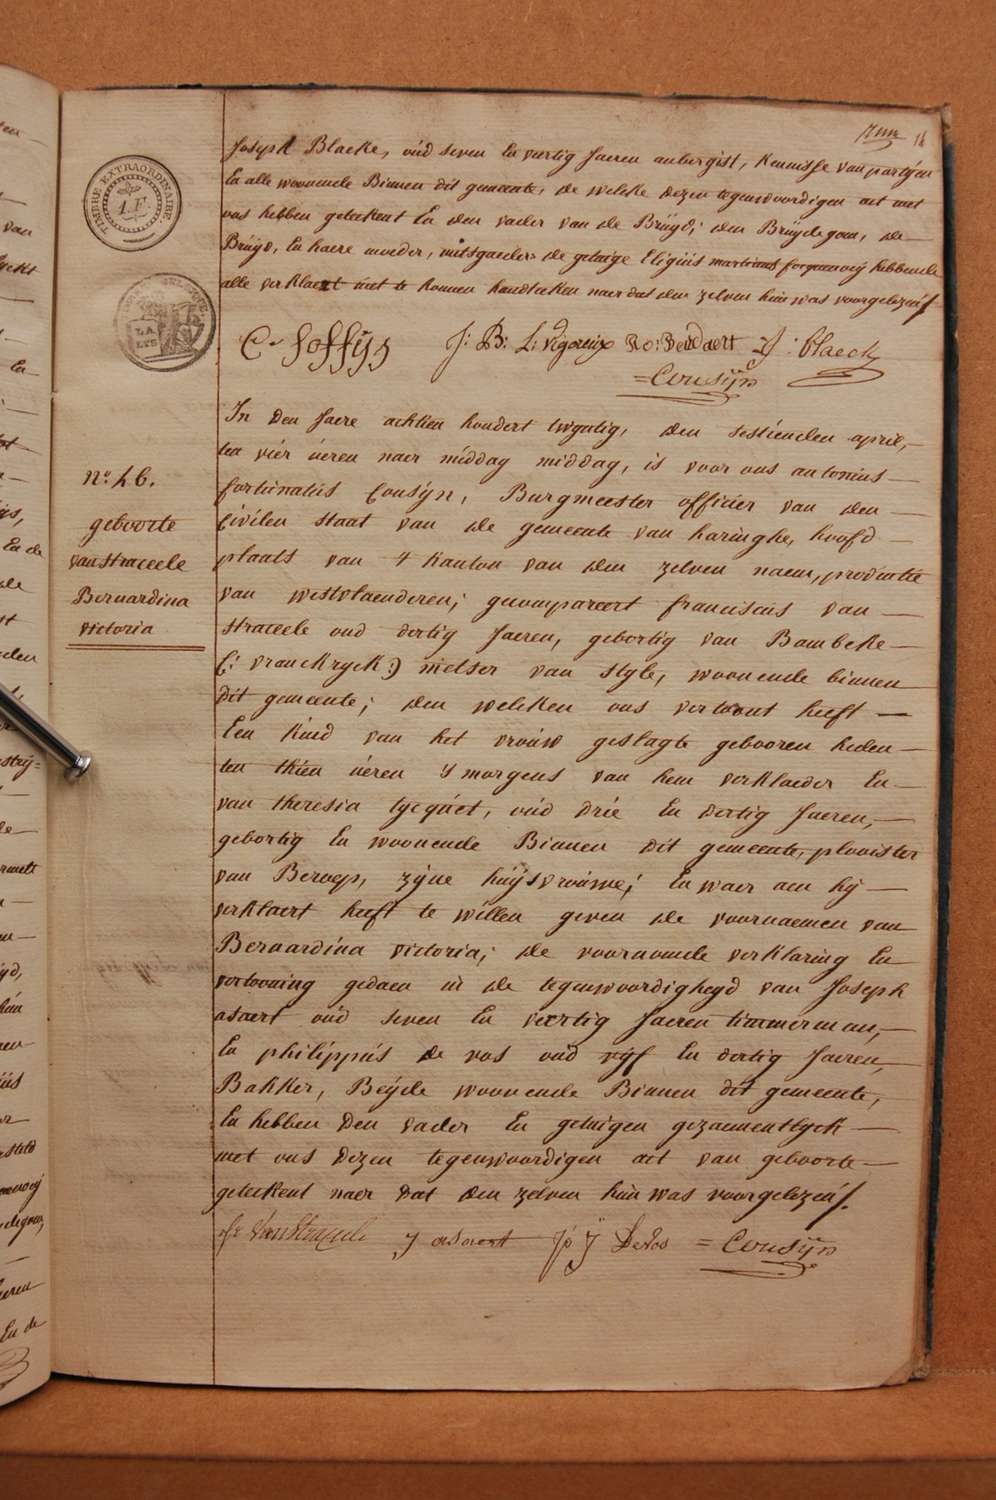 Joseph Blacke, oúd seven En veertig Jaeren aubergist, kennisse van partÿen
En alle woonende Binnen dit gemeente, de welke dezen tegenwoordigen act met
ons hebben geteekent En den vader van de Brúÿd; den Brúÿdegom, de
Brúÿd, En haere moeder, mitsgaeders de getuige Eligiús martinus hebbende
alle verklaert niet te konnen handteeken naer dat den zelven hún was voorgelezen/.
TIMBRE EXTRAORDINAIRE.
1.F.
LA
LYS
C. Soffÿs J: B: L: Vigoreux Ro: Beddaert J: blaeck
=Cousÿn
In den Jaere achtien hondert twyntig, den sestienden april,
ten vier úeren naer middag middag, is voor ons antonius
fortúnatús Coúsÿn, Burgmeester officier van den
Civilen staat van de gemeente van haringhe, hoofd
plaats van 't kanton van den zelven naem, provintie
van westvlaenderen; gecompareert franciscus van
straceele oud dertig Jaeren, gebortig van Bambeke
(: vranckryck:) metser van style, woonende binnen
dit gemeente; den welcken ons vertoont heeft
Een kind van het vroúw geslagte gebooren heden
ten thien úeren 's morgens van hem verklaeder En
van theresia tycquet, oúd drie En dertig Jaeren,
gebortig En woonende Binnen dit gemeente, plooister
van Beroep, zyne húÿsvroúwe; En waer aen hÿ
verklaert heeft te willen geven de voornaemen van
Bernardina victoria; de voornomde verklaring En
vertooning gedaen in de tegenwoordighegd van Joseph
asaert oúd seven En veertig Jaeren timmerman,
En philippús de vos oúd vyf En dertig Jaeren,
Bakker, Beÿde woonende Binnen dit gemeente,
En hebben Den vader En getuigen gezaementlyck
met ons dezen tegenwoordigen act van geboorte
geteekent naer dat den zelven hún was voorgelezen/.
n.º 46.
geboorte
van straceele
Bernardina
victoria
fr VanStraceele J asaert DeVos =Cousÿn